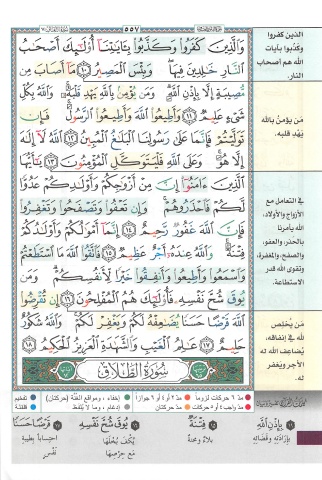 ٥٥٧
وَٱلَّذِينَ كَفَرُوا۟ وَكَذَّبُوا۟ بِـَٔايَـٰتِنَآ أُو۟لَـٰٓئِكَ أَصْحَـٰبُ
ٱلنَّارِ خَـٰلِدِينَ فِيهَا ۖ وَبِئْسَ ٱلْمَصِيرُ ١٠ مَآ أَصَابَ مِن
مُّصِيبَةٍ إِلَّا بِإِذْنِ ٱللَّهِ ۗ وَمَن يُؤْمِنۢ بِٱللَّهِ يَهْدِ قَلْبَهُۥ ۚ وَٱللَّهُ بِكُلِّ
شَىْءٍ عَلِيمٌ ١١ وَأَطِيعُوا۟ ٱللَّهَ وَأَطِيعُوا۟ ٱلرَّسُولَ ۚ فَإِن
تَوَلَّيْتُمْ فَإِنَّمَا عَلَىٰ رَسُولِنَا ٱلْبَلَـٰغُ ٱلْمُبِينُ ١٢ ٱللَّهُ لَآ إِلَـٰهَ
إِلَّا هُوَ ۚ وَعَلَى ٱللَّهِ فَلْيَتَوَكَّلِ ٱلْمُؤْمِنُونَ ١٣ يَـٰٓأَيُّهَا
ٱلَّذِينَ ءَامَنُوٓا۟ إِنَّ مِنْ أَزْوَٰجِكُمْ وَأَوْلَـٰدِكُمْ عَدُوًّا
لَّكُمْ فَٱحْذَرُوهُمْ ۚ وَإِن تَعْفُوا۟ وَتَصْفَحُوا۟ وَتَغْفِرُوا۟
فَإِنَّ ٱللَّهَ غَفُورٌ رَّحِيمٌ ١٤ إِنَّمَآ أَمْوَٰلُكُمْ وَأَوْلَـٰدُكُمْ
فِتْنَةٌ ۚ وَٱللَّهُ عِندَهُۥٓ أَجْرٌ عَظِيمٌ ١٥ فَٱتَّقُوا۟ ٱللَّهَ مَا ٱسْتَطَعْتُمْ
وَٱسْمَعُوا۟ وَأَطِيعُوا۟ وَأَنفِقُوا۟ خَيْرًا لِّأَنفُسِكُمْ ۗ وَمَن
يُوقَ شُحَّ نَفْسِهِۦ فَأُو۟لَـٰٓئِكَ هُمُ ٱلْمُفْلِحُونَ ١٦ إِن تُقْرِضُوا۟
ٱللَّهَ قَرْضًا حَسَنًا يُضَـٰعِفْهُ لَكُمْ وَيَغْفِرْ لَكُمْ ۚ وَٱللَّهُ شَكُورٌ
حَلِيمٌ ١٧ عَـٰلِمُ ٱلْغَيْبِ وَٱلشَّهَـٰدَةِ ٱلْعَزِيزُ ٱلْحَكِيمُ ١٨
سُورَةُ الطَّلَاقِ
الذين كفروا
وكذّبوا بآيات
الله هم أصحاب
النار.
مَن يؤمن بالله
يَهْدِ قلبه.
في التعامل مع
الأزواج والأولاد،
الله يأمرنا
بالحذر، والعفو،
والصفح، والمغفرة،
وتقوى الله قدر
الاستطاعة.
مَن يُخلِص
لله في إنفاقه،
يُضاعِف الله له
الأجر ويغفر
له.
مدّ ٦ حركات لزوماً مدّ ٢ أو ٤ أو ٦ جوازاً إخفاء، ومواقع الغُنَّة (حركتان) تفخيم
مدّ واجب ٤ أو ٥ حركات مدّ حركتان إدغام، وما لا يُلفَظ قلقلة
١١ بِإِذْنِ اللَّهِ
بإرادَتِهِ وقَضائِهِ
١٥ فِتْنَةٌ
بلاءٌ ومحنةٌ
١٦ يُوقَ شُحَّ نَفْسِهِ
يُكْفَ بُخْلَها
مع حِرصِها
١٧ قَرْضًا حَسَنًا
احتساباً بطيبةِ
نَفْسٍ